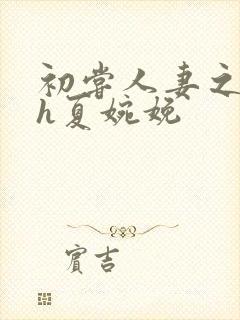 初尝人妻之
h夏婉娩
宾吉